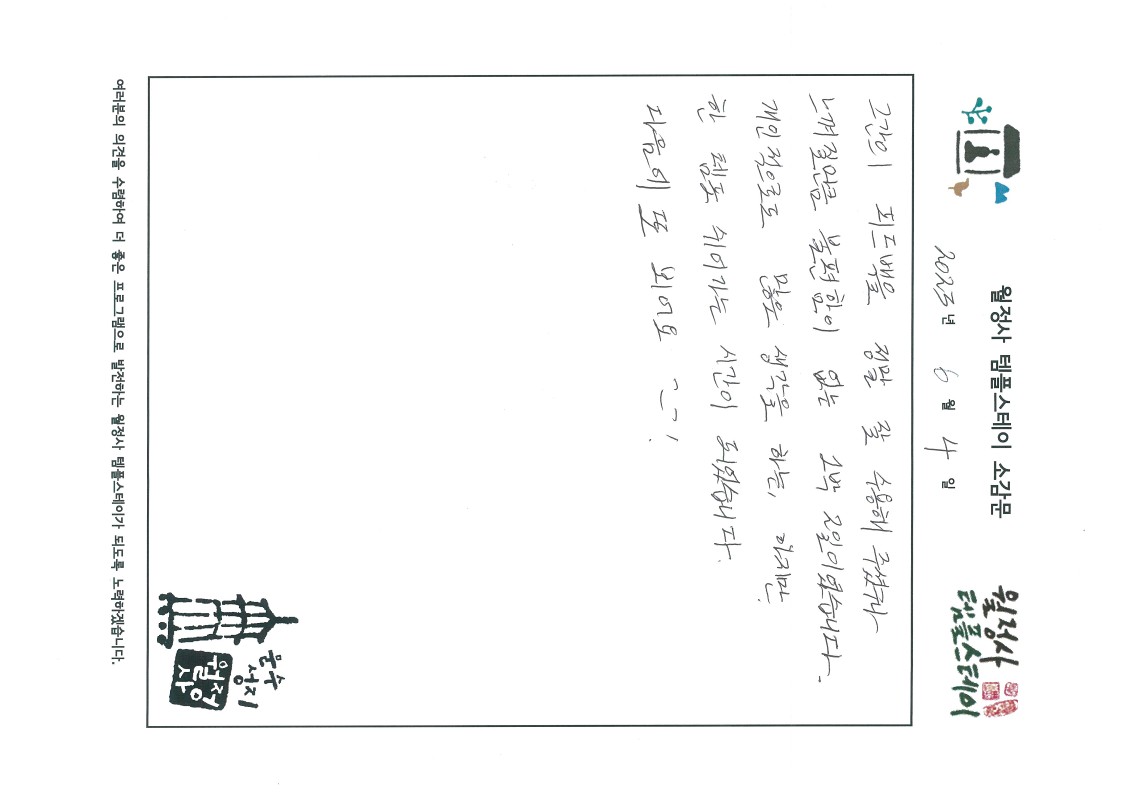 월정사 템플스테이 소감문
월정사
템플스테이
2023년 6월 4일
그간의 피드백을 정말 잘 수용해 주셨구나
느껴질만큼 불편함이 없는 1박 2일이었습니다.
개인적으로도 많은 생각을 하는, 하지만
한 템포 쉬어가는 시간이 되었습니다.
다음에 또 뵈어요 ^^!
문수
성지
월정사
여러분의 의견을 수렴하여 더 좋은 프로그램으로 발전하는 월정사 템플스테이가 되도록 노력하겠습니다.